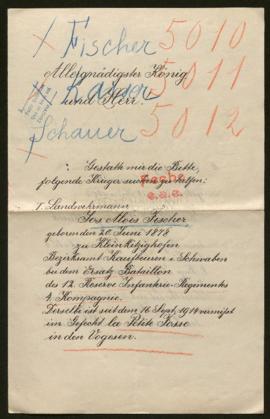 Fischer 5010
Allergnädigster König
5011
und Herr!
Schauer 5012
Gestatte mir die Bitte,
folgende Krieger suchen zu helfen:
1. Landwehrmann
Fischer
geboren den 20. Juni 1878
zu Kleinkitzighofen
Bezirksamt Kaufbeuren in Schwaben
bei dem Ersatz Bataillon
des 12. Reserve Infanterie-Regimentes
4. Kompagnie.
Derselbe ist seit dem 16. Sept. 1914 vermisst
im Gefecht la Petite Fosse
in den Vogesen.